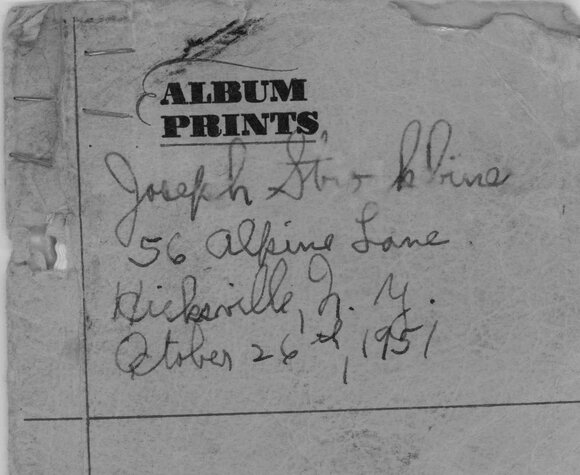 ALBUM
PRINTS
Joseph
56 Alpine Lane
Hicksville, N. Y.
October 26th, 1951